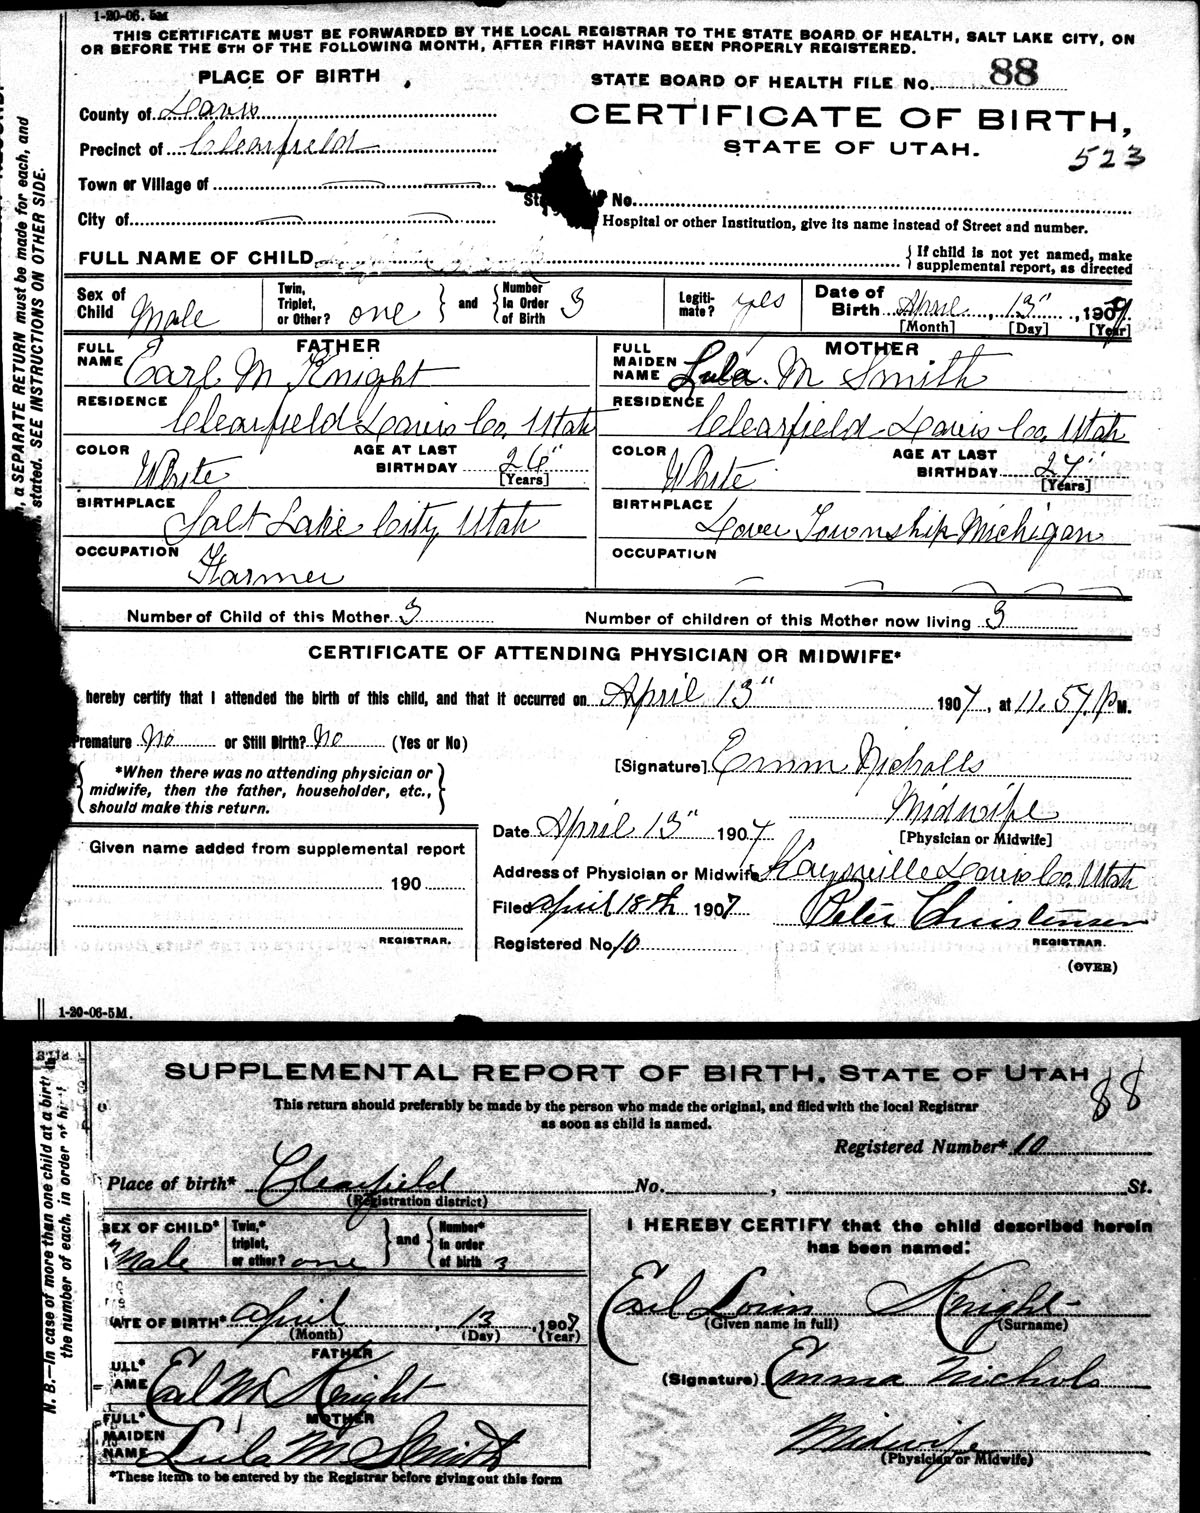 1-20-06. 5M
THIS CERTIFICATE MUST BE FORWARDED BY THE LOCAL REGISTRAR TO THE STATE BOARD OF HEALTH, SALT LAKE CITY, ON
OR BEFORE THE 5TH OF THE FOLLOWING MONTH, AFTER FIRST HAVING BEEN PROPERLY REGISTERED.
PLACE OF BIRTH
STATE BOARD OF HEALTH FILE No. 88
County of Davis
CERTIFICATE OF BIRTH,
Precinct of Clearfield
STATE OF UTAH.
523
Town or Village of
No.
City of
Hospital or other Institution, give its name instead of Street and number.
FULL NAME OF CHILD
{ If child is not yet named, make
supplemental report, as directed
Sex of Child Male
Twin, Triplet, or Other? one } and { Number in Order of Birth 3
Legitimate? yes
Date of Birth April, 13", 1907
[Month] [Day] [Year]
FATHER
FULL NAME Earl M Knight
RESIDENCE Clearfield Davis Co. Utah
COLOR White
AGE AT LAST BIRTHDAY 26" [Years]
BIRTHPLACE Salt Lake City Utah
OCCUPATION Farmer
MOTHER
FULL MAIDEN NAME Lula. M Smith
RESIDENCE Clearfield Davis Co. Utah
COLOR White
AGE AT LAST BIRTHDAY [Years]
BIRTHPLACE Dover Township Michigan
OCCUPATION
Number of Child of this Mother 3
Number of children of this Mother now living 3
CERTIFICATE OF ATTENDING PHYSICIAN OR MIDWIFE*
hereby certify that I attended the birth of this child, and that it occurred on April 13" 1907, at 11.57 P M.
Premature No or Still Birth? No (Yes or No)
{ *When there was no attending physician or
midwife, then the father, householder, etc.,
should make this return. }
[Signature] Emm Nicholls
Midwife
[Physician or Midwife]
Date April 13" 1907
Given name added from supplemental report
190
REGISTRAR.
Address of Physician or Midwife Kaysville Davis Co. Utah
Filed april 18th 1907 Peter Christensen
REGISTRAR.
Registered No. 10
(OVER)
1-20-06-5M.
, a SEPARATE RETURN must be made for each, and
stated. SEE INSTRUCTIONS ON OTHER SIDE.
SUPPLEMENTAL REPORT OF BIRTH, STATE OF UTAH
88
This return should preferably be made by the person who made the original, and filed with the local Registrar
as soon as child is named.
Registered Number* 10
Place of birth* Clearfield No. , St.
(Registration district)
SEX OF CHILD* Male
Twin,* triplet, or other? one } and { Number* in order of birth 3
DATE OF BIRTH* april, 13, 1907
(Month) (Day) (Year)
FATHER
Earl M Knight
MOTHER
FULL* MAIDEN NAME Lula M Smith
*These items to be entered by the Registrar before giving out this form
I HEREBY CERTIFY that the child described herein
has been named:
Earl Lorin Knight
(Given name in full) (Surname)
(Signature) Emma Nichols
Midwife
(Physician or Midwife)
N. B.—In case of more than one child at a birth
the number of each, in order of